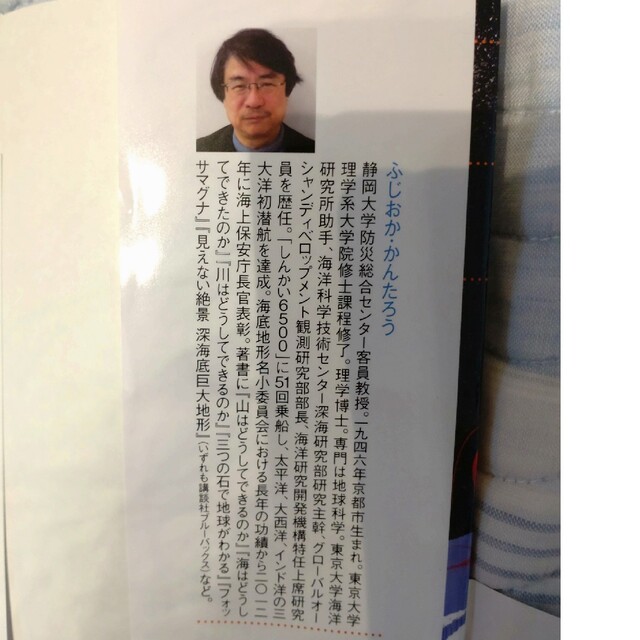 ふじおか・かんたろう
静岡大学防災総合センター客員教授。一九四六年京都市生まれ。東京大学
理学系大学院修士課程修了。理学博士。専門は地球科学。東京大学海洋
研究所助手、海洋科学技術センター深海研究部研究主幹、グローバルオー
シャンディベロップメント観測研究部部長、海洋研究開発機構特任上席研究
員を歴任。「しんかい6500」に51回乗船し、太平洋、大西洋、インド洋の三
大洋初潜航を達成。海底地形名小委員会における長年の功績から二〇一二
年に海上保安庁長官表彰。著書に『山はどうしてできるのか』『海はどうし
てできたのか』『川はどうしてできるのか』『三つの石で地球がわかる』『フォッ
サマグナ』『見えない絶景 深海底巨大地形』(いずれも講談社ブルーバックス)など。